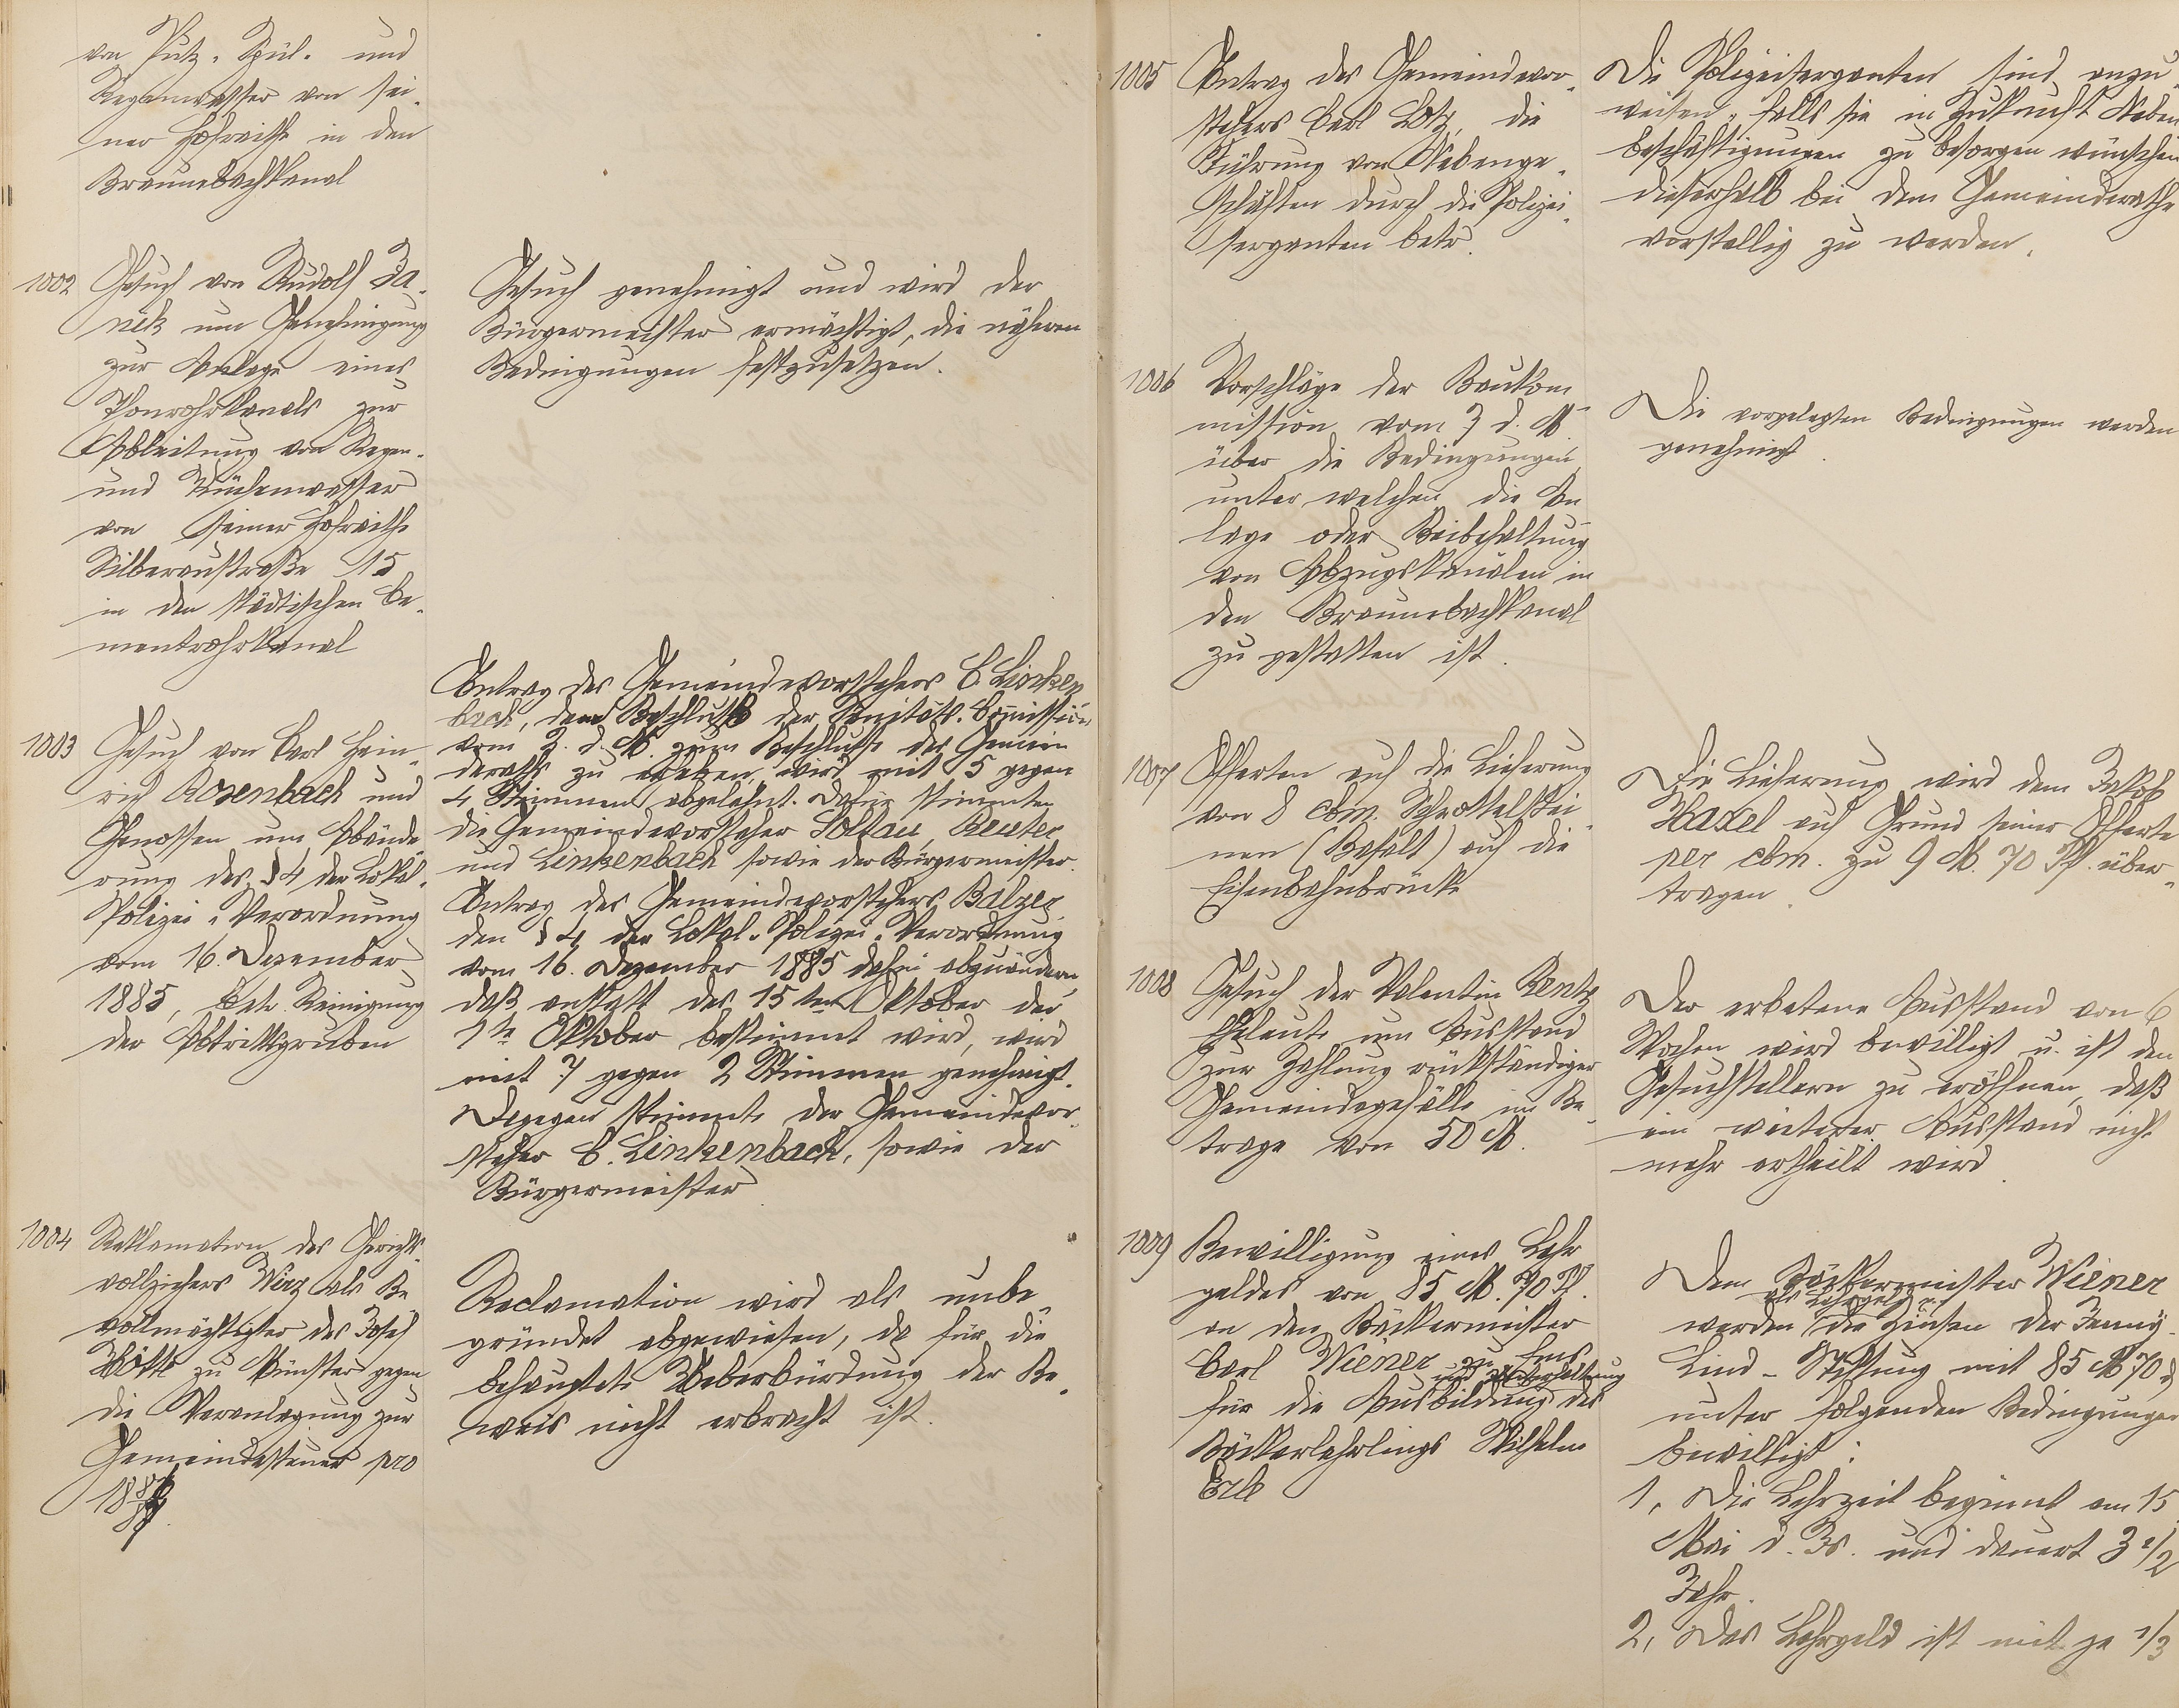 von Putz-, Spül- und
Regenwasser von sei-
ner Hofreithe in den
Braunebachkanal
1002
Gesuch von Rudolf Ja-
nek um Genehmigung
zur Anlage eines
Thonrohrkanals zur
Ableitung von Regen-
und Küchenwasser
von seiner Hofreithe
Silberaustraße 15
in den städtischen Ce-
mentrohrkanal
Gesuch genehmigt und wird der
Bürgermeister ermächtigt, die näheren
Bedingungen festzusetzen.
1003
Gesuch von Carl Hein-
rich Rosenbach und
Genossen um Abände-
rung des § 4 der Lokal-
Polizei-Verordnung
vom 16. Dezember
1885, betr. Reinigung
der Abtrittsgruben
Antrag des Gemeindevorstehers C. Linken
bach, den Beschluß der Sanitäts-Comission
vom 2. d. M. zum Beschlusse des Gemein
deraths zu erheben, wird mit 5 gegen
4 Stimmen abgelehnt. Dafür stimmten
die Gemeindevorsteher Soltau, Reuter
und Linkenbach sowie der Bürgermeister.
Antrag des Gemeindevorstehers Balzer
den § 4 der Lokal-Polizei-Verordnung
vom 16. Dezember 1885 dahin abzuändern,
daß anstatt des 15ten Oktober der
1te Oktober bestimmt wird, wird
mit 7 gegen 2 Stimmen genehmigt.
Dagegen stimmte der Gemeindevor-
steher C. Linkenbach, sowie der
Bürgermeister
1004
Reklamation des Gerichts-
vollziehers Wirz als Be
vollmächtigter des Josef
Hötte zu Münster gegen
die Veranlagung zur
Gemeindesteuer pro
Reclamation wird als unbe-
gründet abgewiesen, da für die
behauptete Ueberbürdung der Be-
weis nicht erbracht ist.
1005
Antrag des Gemeindevor-
stehers Carl Lotz, die
Führung von Nebenge-
schäften durch die Polizei-
serganten betr.
Die Polizeiserganten sind anzu-
weisen, falls sie in Zukunft Neben
beschäftigungen zu besorgen wünschen
dieserhalb bei dem Gemeinderathe
vorstellig zu werden.
1006
Vorschläge der Baukom
mission vom 3 d. M.
über die Bedingungen
unter welchen die An
lage oder Beibehaltung
von Abzugskanälen in
den Braunebachkanal
zu gestatten ist.
Die vorgelegten Bedingungen werden
genehmigt.
1007
Offerten auf die Lieferung
von 8 cbm. Schrottelstei-
nen (Basalt) auf die
Eisenbahnbrücke
Die Lieferung wird dem Jakob
Haxel auf Grund seiner Offerte
per cbm. zu 9 M. 70 Pf. über-
tragen.
1008
Gesuch der Valentin Rentz
Eheleute um Ausstand
zur Zahlung rückständiger
Gemeindegefälle im Be-
trage von 50 M.
Der erbetene Ausstand von 6
Wochen wird bewilligt u. ist den
Gesuchstellern zu eröffnen, daß
ein weiterer Ausstand nicht
mehr ertheilt wird.
1009
Bewilligung eines Lehr
geldes von 85 M. 70 Pf.
an den Bäckermeister
Carl Wiener zu Ems
und Unterhaltung
für die Ausbildung des
Bäckerlehrlings Wilhelm
Erle
Dem Bäckermeister Wiener
als Lehrgeld
werden die Zinsen der Jenny-
Lind-Stiftung mit 85 M 70 ₰
unter folgenden Bedingungen
bewilligt:
1, Die Lehrzeit beginnt am 15
Mai d. Js. und dauert 3 1/2
Jahr.
2, Das Lehrgeld ist mit je 1/3